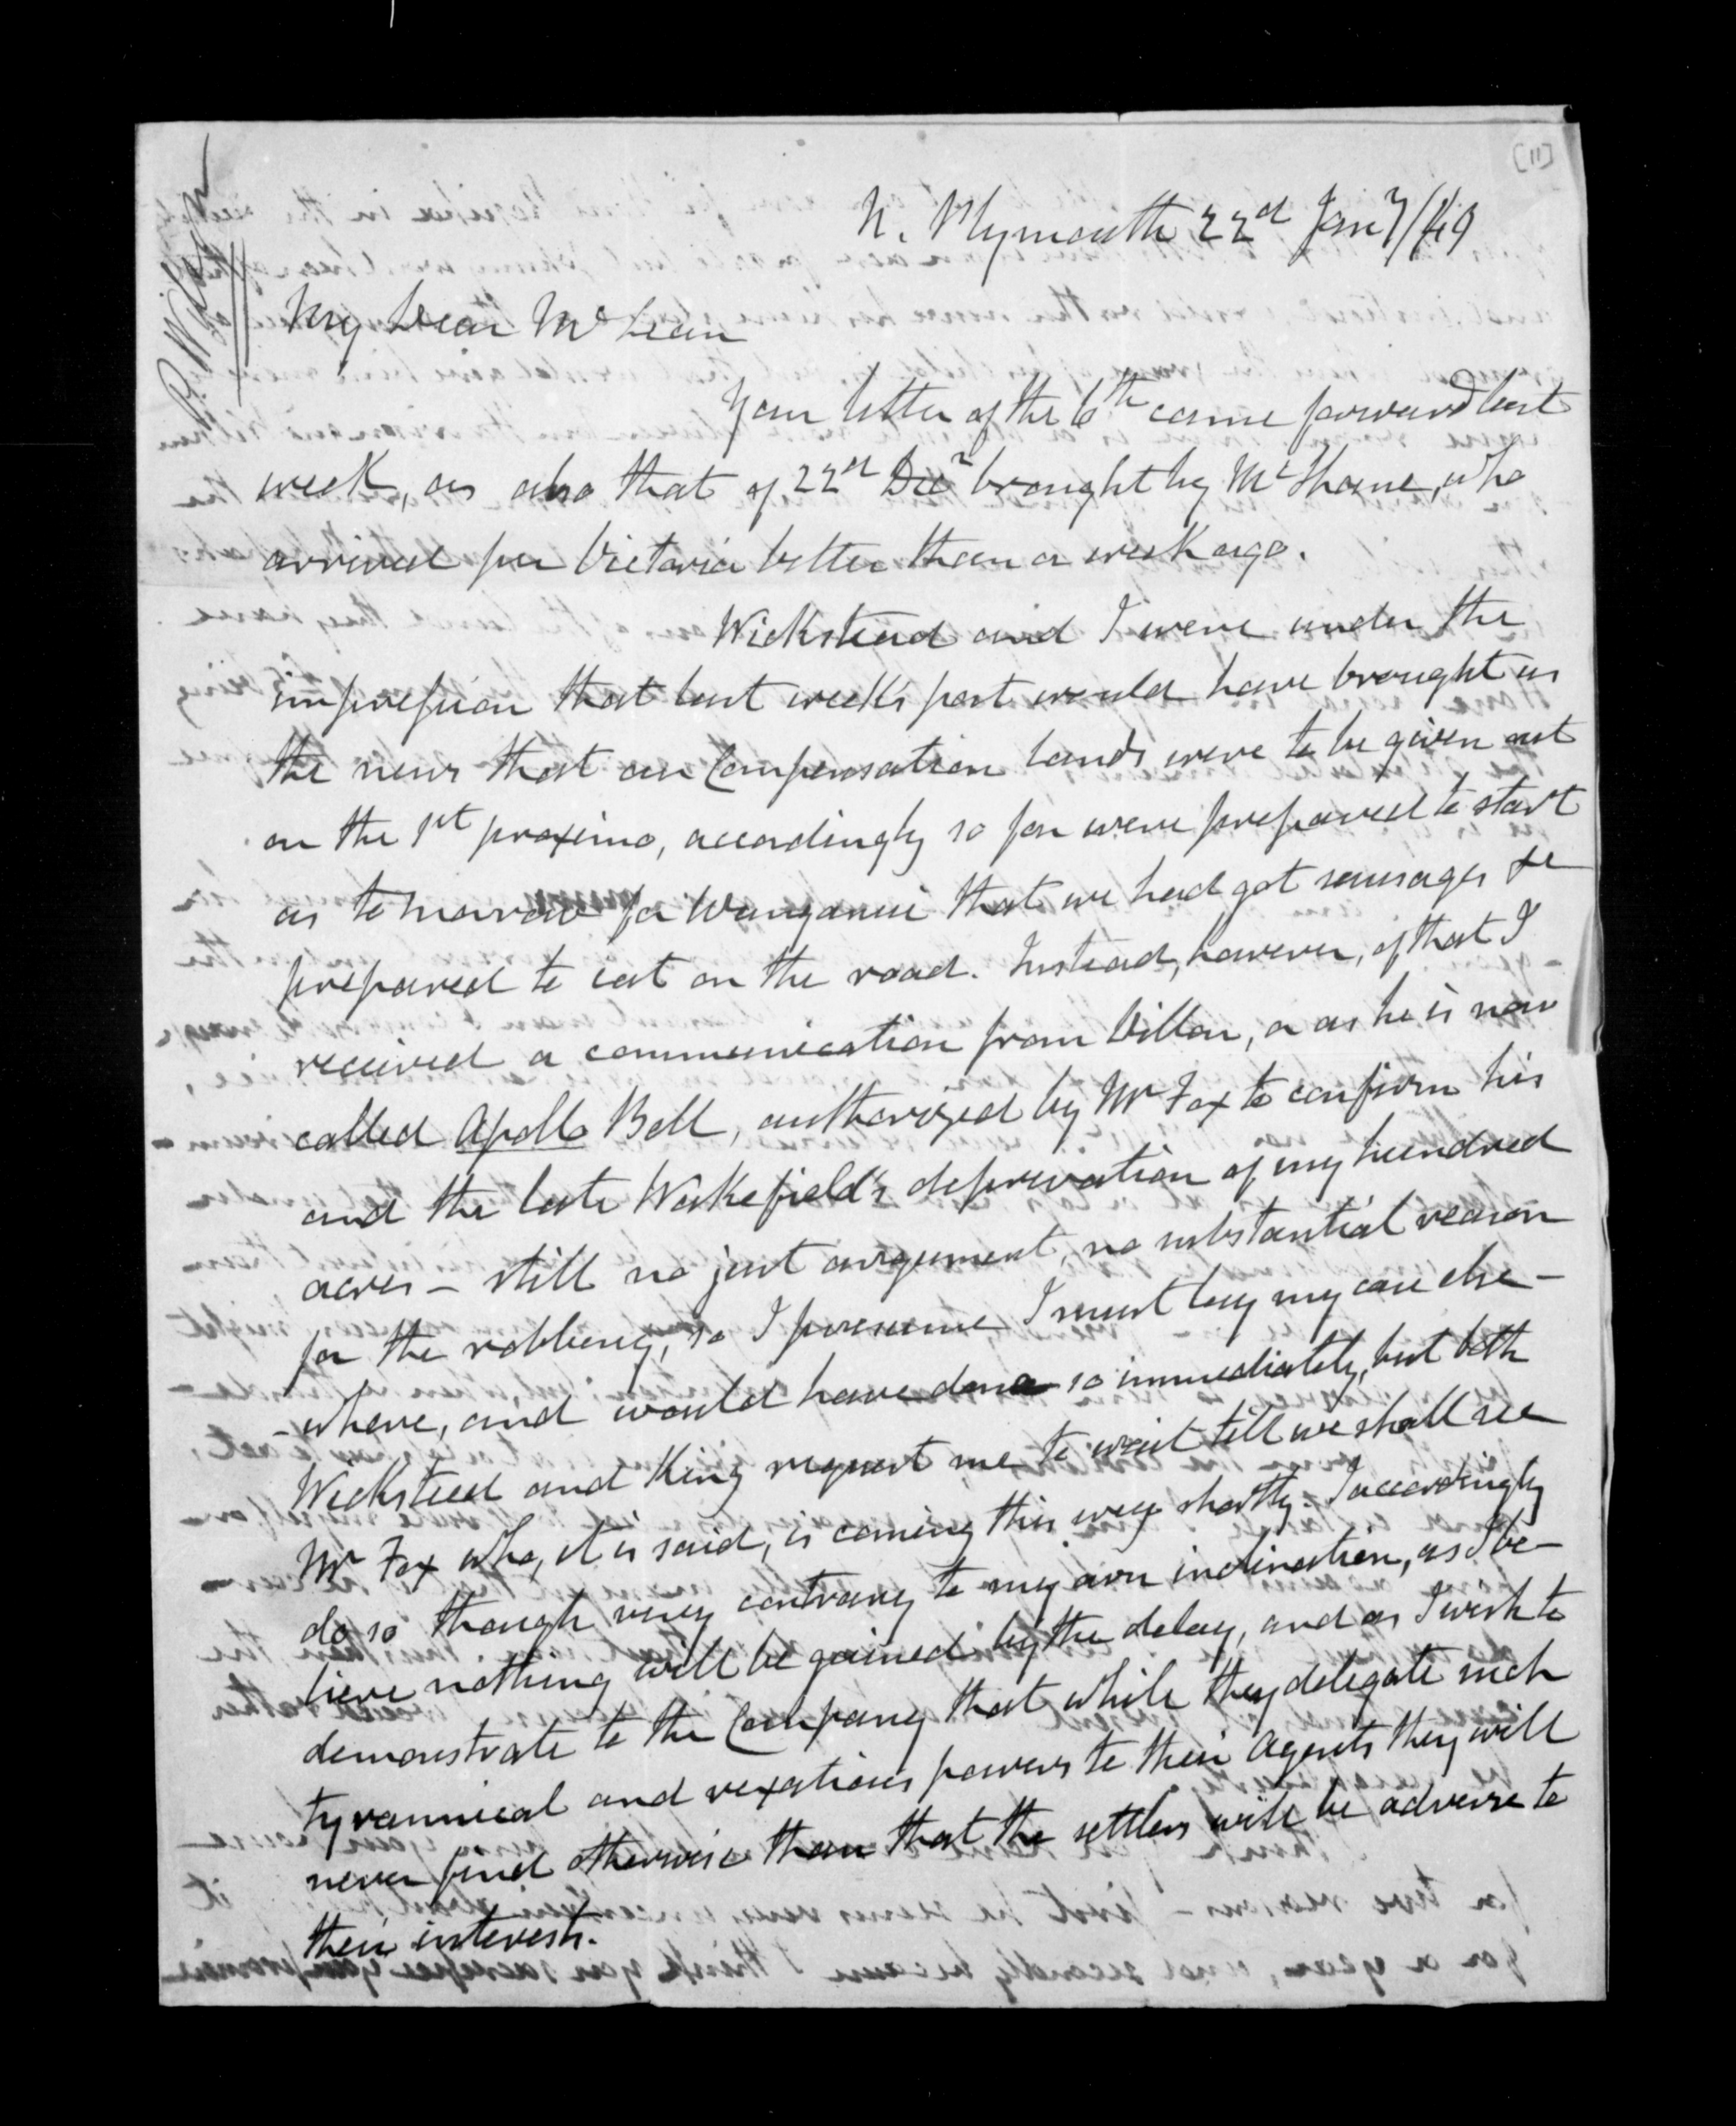 [11]
P. Wilson
N. Plymouth 22d Jany/49
My Dear McLean
Your letter of the 6th came forward last
week, as also that of 22d Decr brought by Mr Thane, who
arrived per Victoria better than a week ago.
Wickstead and I were under the
impression that last week's post would have brought us
the news that our Compensation lands were to be given out
on the 1st proximo, accordingly so far were prepared to start
as tomorrow for Wanganui that we had got sausages &c
prepared to eat on the road. Instead, however, of that I
received a communication from Dillon, or as he is now
called Apollo Bell, authorized by Mr Fox to confirm his
and the late Wakefield's deprivation of my hundred
acres - still no just argument, no substantial reason
for the robbery, so I presume I must lay my case else-
-where, and would have done so immediately, but both
Wicksteed and King request me to wait till we shall see
Mr Fox who, it is said, is coming this way shortly. I accordingly
do so though very contrary to my own inclination, as I be-
lieve nothing will be gained by the delay, and as I wish to
demonstrate to the Company that while they delegate such
tyrannical and vexatious powers to their Agents they will
never find otherwise than that the settlers will be adverse to
their interests.